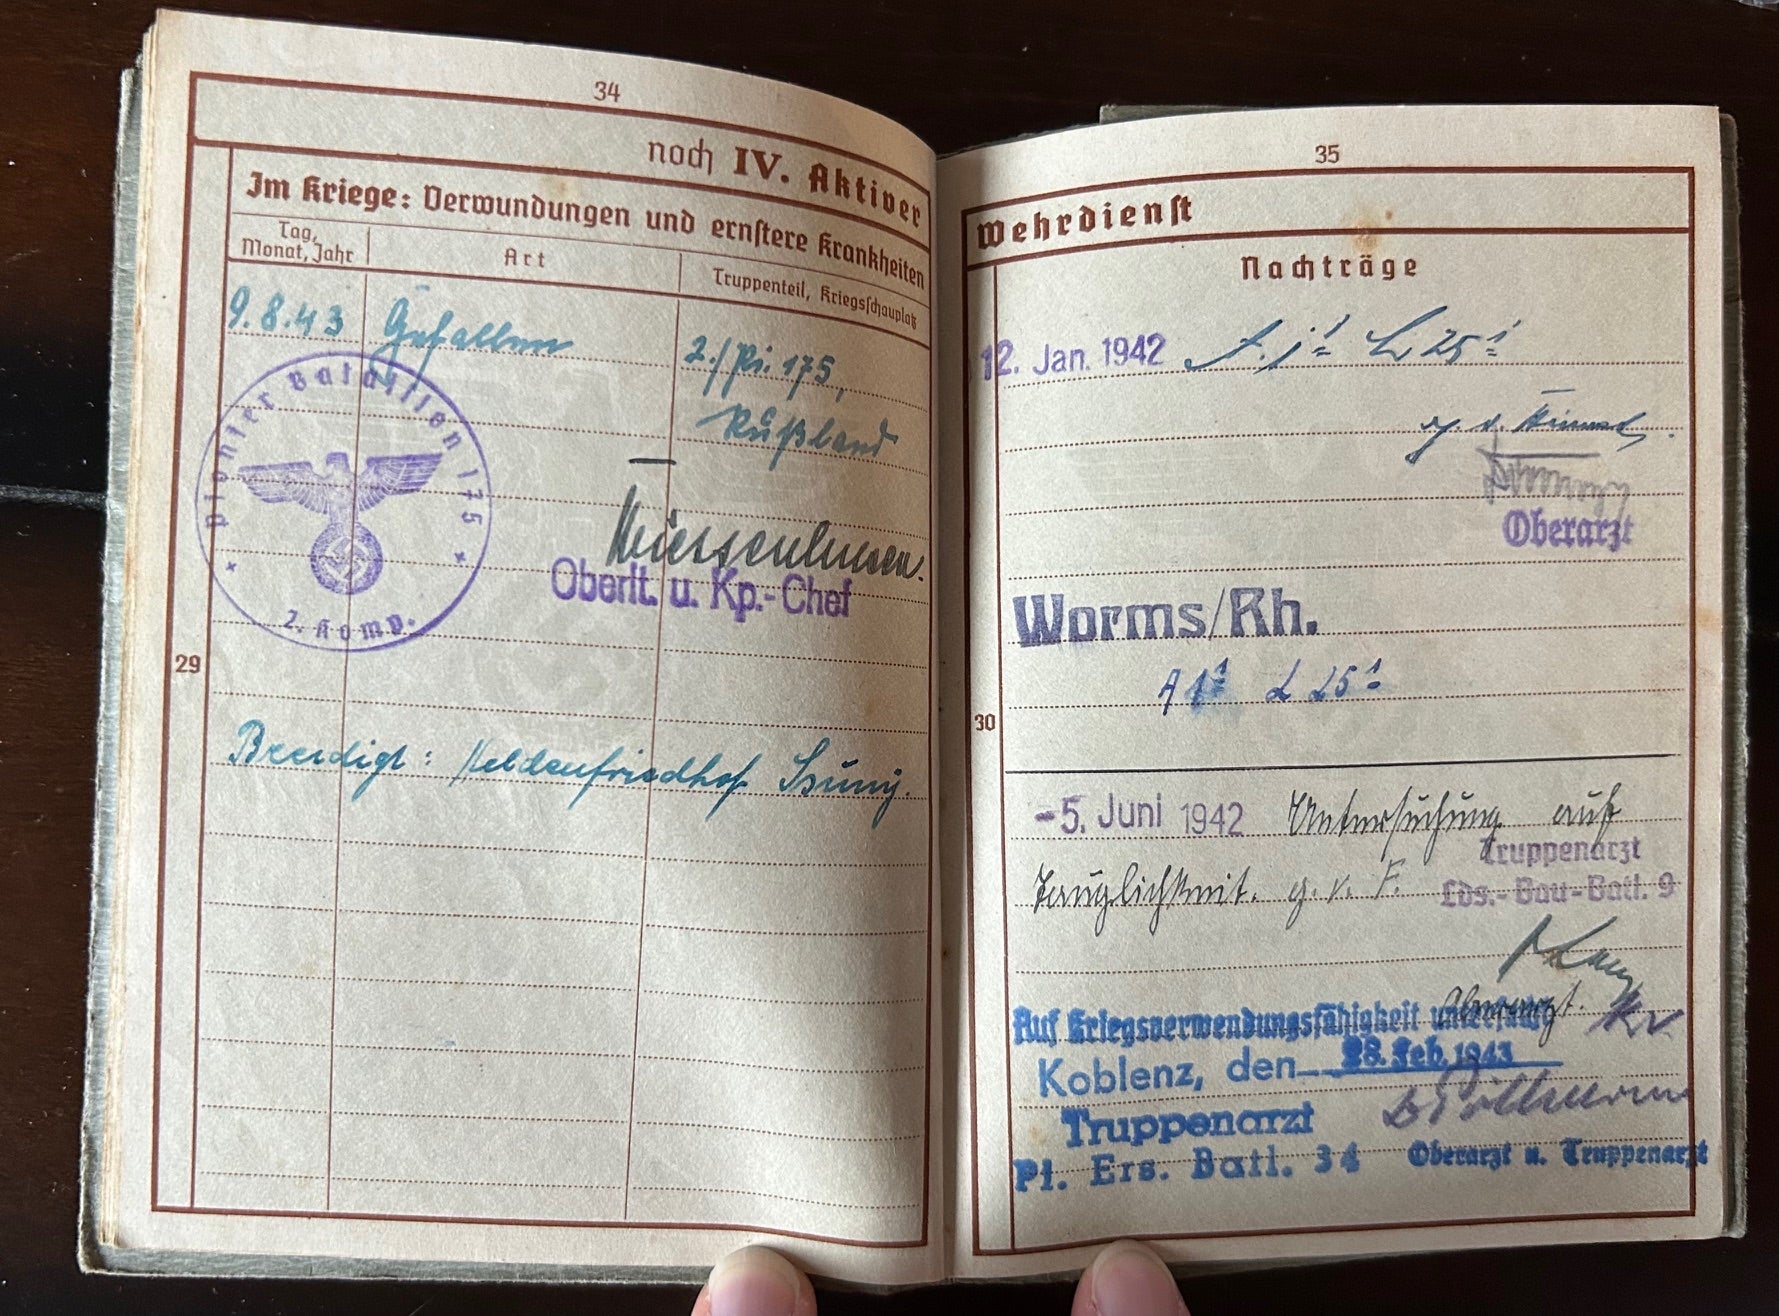 34
noch IV. Aktiver
Im Kriege: Verwundungen und ernstere Krankheiten
Tag, Monat, Jahr
Art
Truppenteil, Kriegsschauplatz
9.8.43 Gefallen 2./Pi. 175,
Rußland
Pionier Bataillon 175
2. Komp.
Oberlt. u. Kp.-Chef
29
Beerdigt: Heldenfriedhof
35
Wehrdienst
Nachträge
12. Jan. 1942
Oberarzt
Worms/Rh.
30
-5. Juni 1942 Untersuchung auf
Truppenarzt
Tauglichkeit. g. v. F.
Lds.-Bau-Batl. 9
Oberarzt. kv
Auf Kriegsverwendungsfähigkeit untersucht
Koblenz, den 28. Feb. 1943
Truppenarzt
Pi. Ers. Batl. 34
Oberarzt u. Truppenarzt